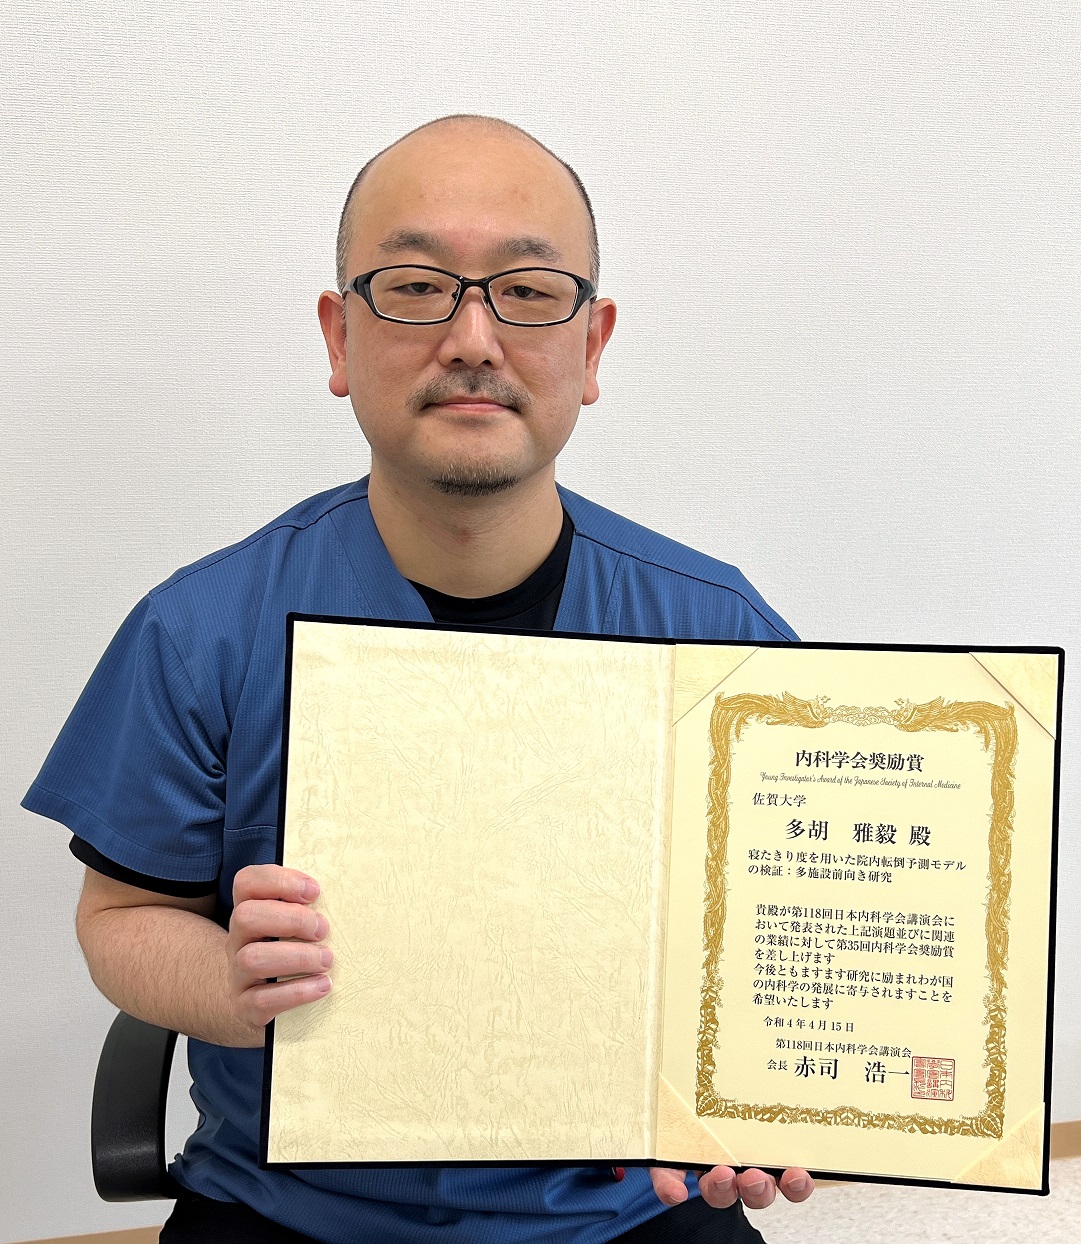 内科学会奨励賞
Young Investigator's Award of the Japanese Society of Internal Medicine
佐賀大学
多胡 雅毅 殿
寝たきり度を用いた院内転倒予測モデル
の検証：多施設前向き研究
貴殿が第118回日本内科学会講演会に
おいて発表された上記演題並びに関連
の業績に対して第35回内科学会奨励賞
を差し上げます
今後ともますます研究に励まれわが国
の内科学の発展に寄与されますことを
希望いたします
令和4年4月15日
第118回日本内科学会講演会
会長 赤司 浩一